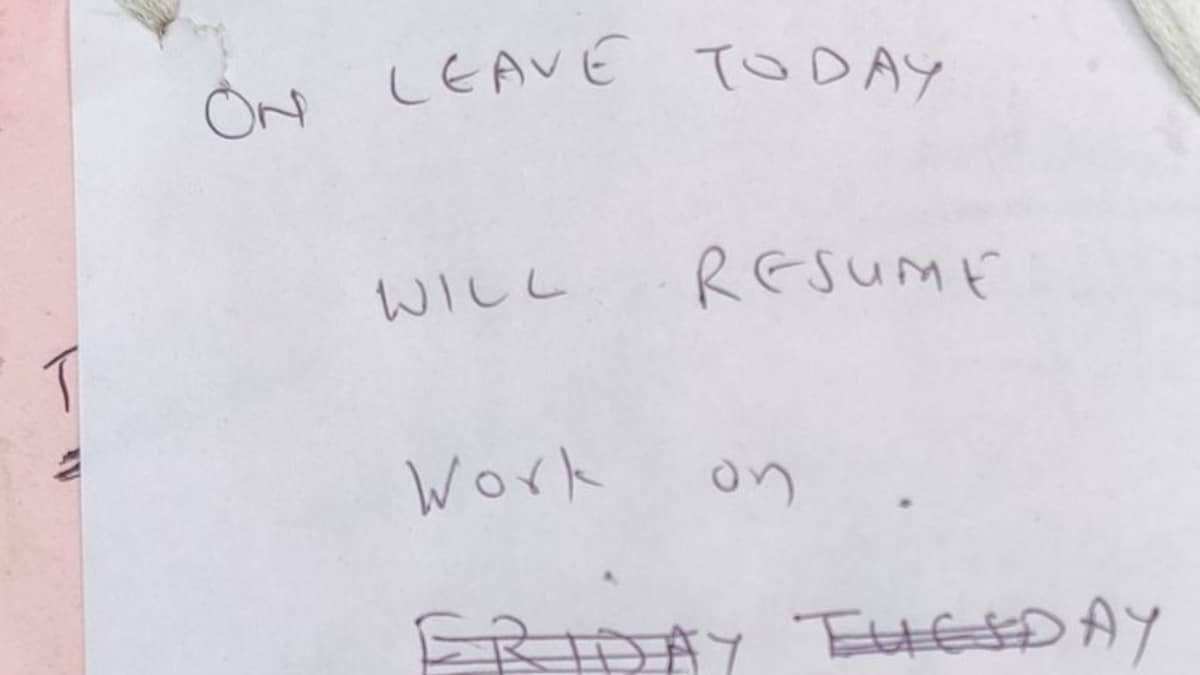 ON LEAVE TODAY
WILL RESUME
Work on .
FRIDAY TUESDAY
T